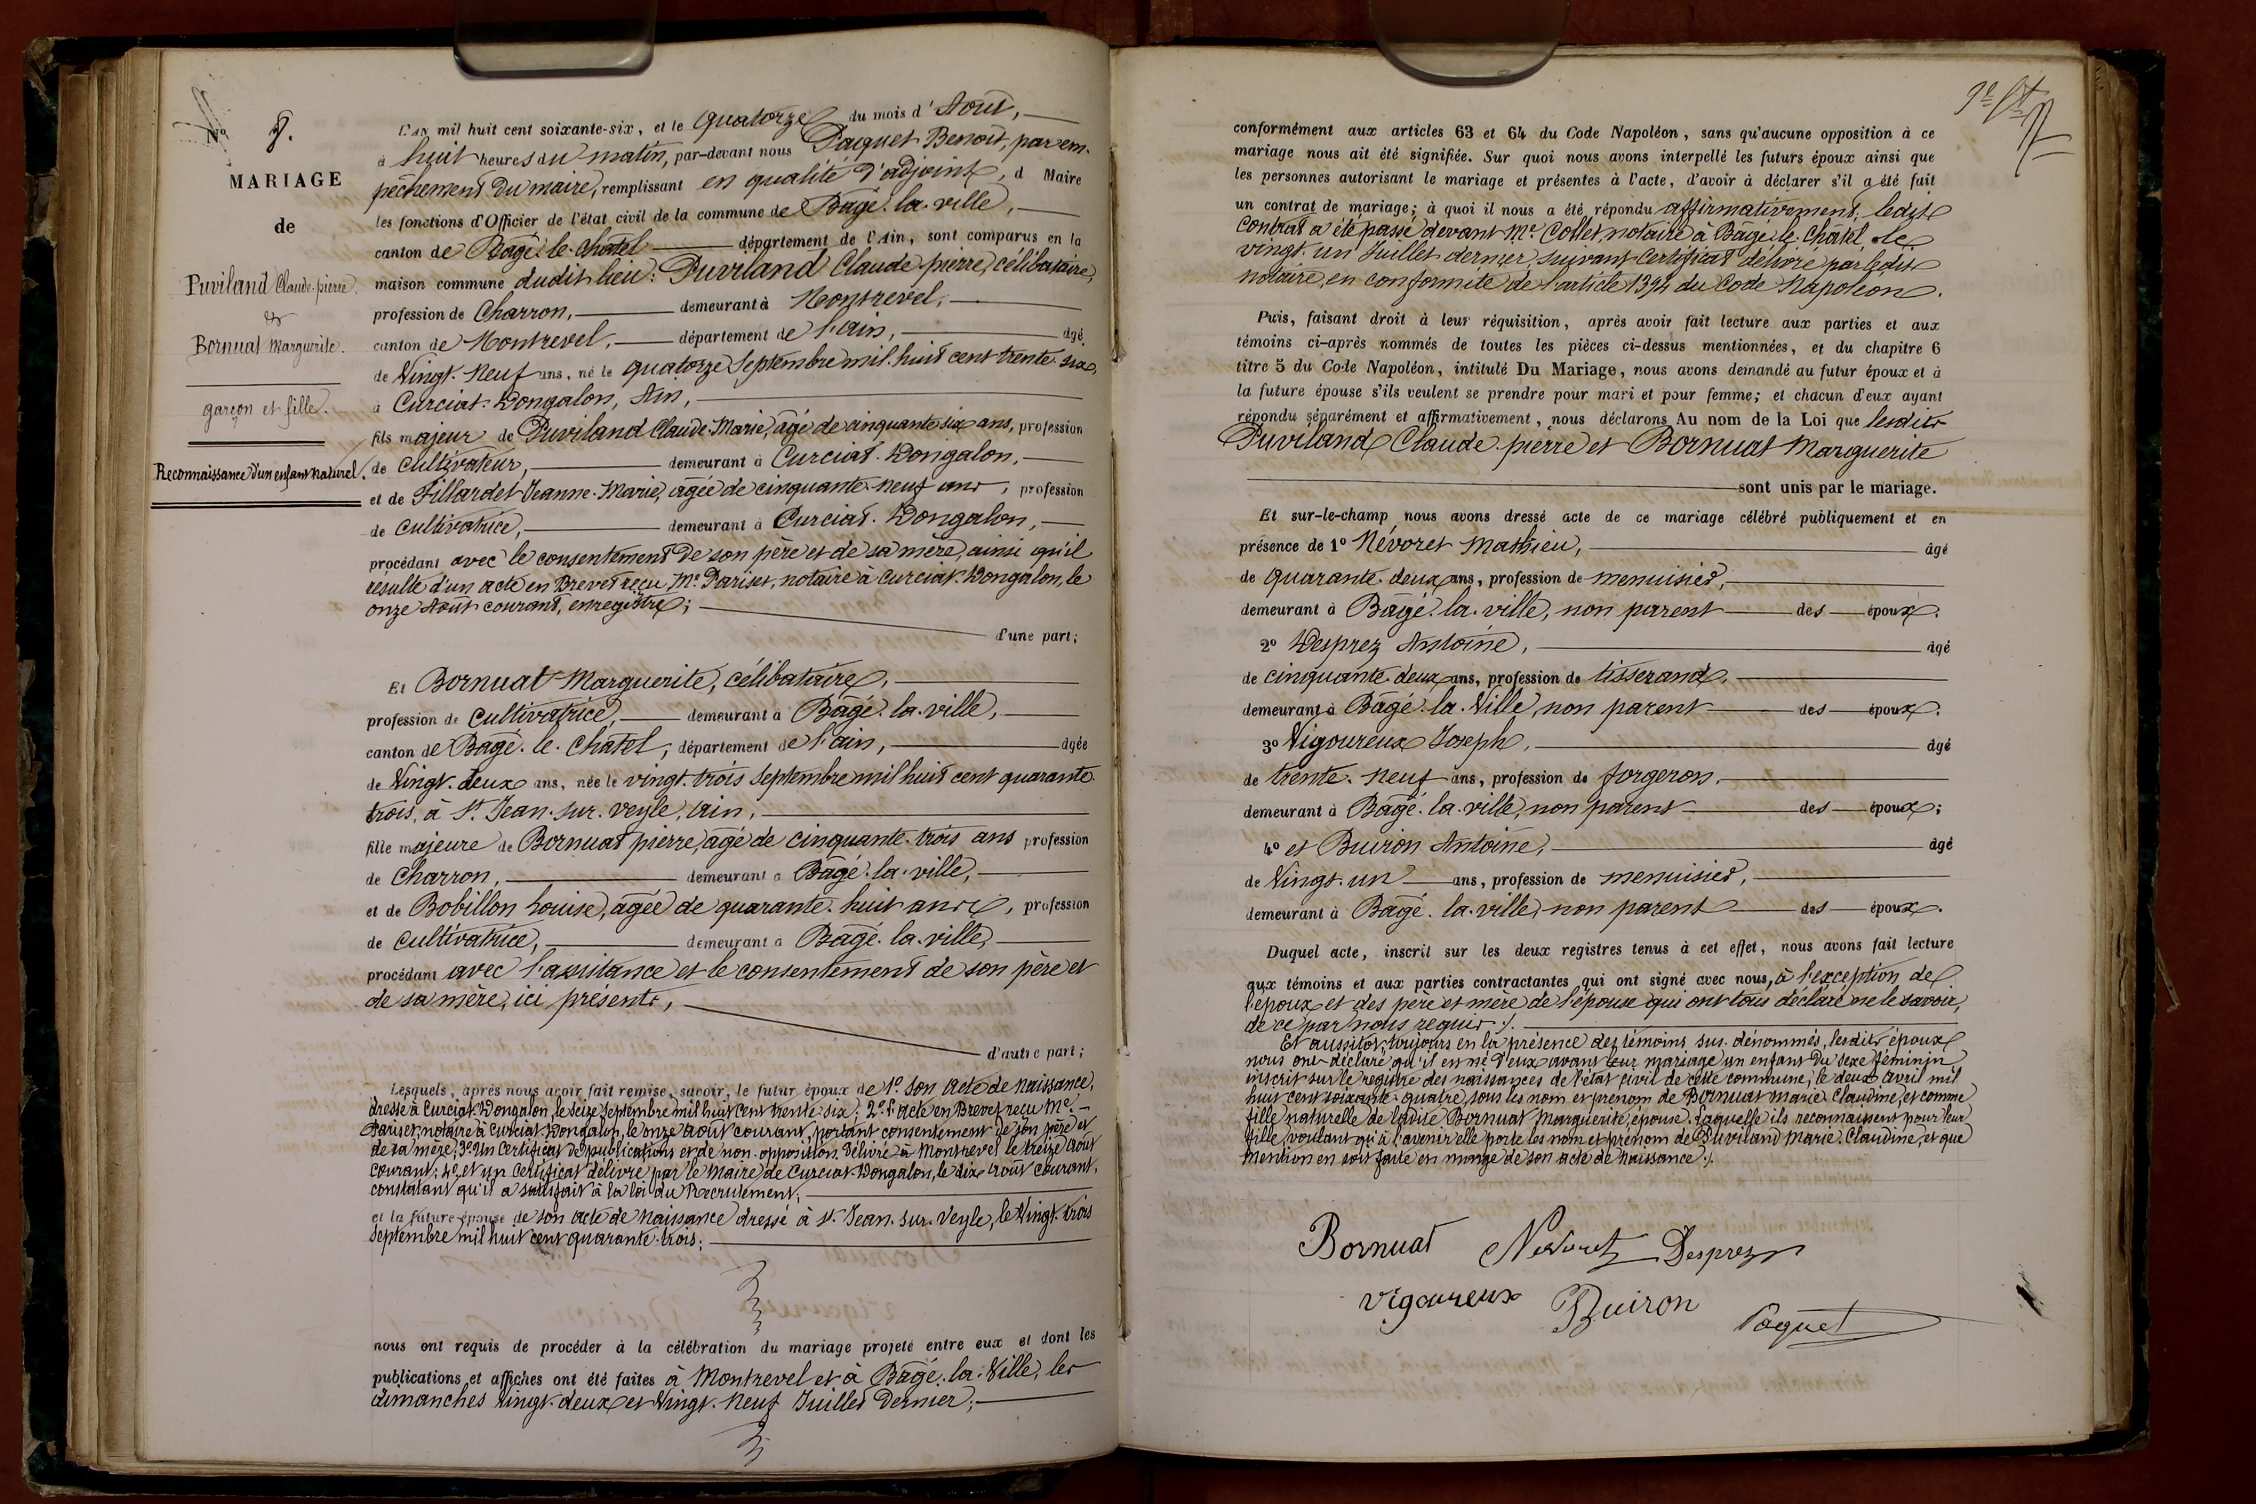 Nº 8.
MARIAGE
de
Puviland Claude-pierre
et
Bornuat Marguerite.
garçon et fille.
Reconnaissance d'un enfant naturel.
L'an mil huit cent soixante-six, et le quatorze du mois d'Août,
à huit heures du matin, par-devant nous Paquet Benoit, par em-
pêchement du maire, remplissant en qualité d'adjoint, d Maire
les fonctions d'Officier de l'état civil de la commune de Bâgé-la-ville,
canton de Bâgé-le-Châtel département de l'Ain, sont comparus en la
maison commune dudit lieu : Puviland Claude-pierre, célibataire,
profession de Charron, demeurant à Montrevel,
canton de Montrevel, département de l'ain, âgé
de Vingt-Neuf ans, né le quatorze Septembre mil huit cent trente-six,
à Curciat-Dongalon, Ain,
fils majeur de Puviland Claude-Marie, âgé de cinquante six ans, profession
de cultivateur, demeurant à Curciat-Dongalon,
et de Fillardet Jeanne-Marie, âgée de cinquante-neuf ans, profession
de cultivatrice, demeurant à Curciat-Dongalon,
procédant avec le consentement de son père et de sa mère, ainsi qu'il
résulte d'un acte en Brevet reçu Me Pariset, notaire à Curciat-Dongalon, le
onze Août courant, enregistré;
d'une part;
Et Bornuat Marguerite, célibataire,
profession de cultivatrice, demeurant à Bâgé-la-ville,
canton de Bagé-le-Chatel, département de l'ain, âgée
de Vingt-deux ans, née le vingt-trois Septembre mil huit cent quarante-
trois, à St Jean-sur-veyle, ain,
fille majeure de Bornuat pierre, âgé de cinquante-trois ans profession
de Charron, demeurant à Bâgé-la-ville,
et de Bobillon Louise, âgée de quarante-huit ans, profession
de cultivatrice, demeurant à Bâgé-la-ville,
procédant avec l'assistance et le consentement de son père et
de sa mère, ici présents,
d'autre part;
Lesquels, après nous avoir fait remise, savoir, le futur époux de 1º son acte de naissance,
dressé à Curciat-Dongalon, le seize septembre mil huit cent trente-six; 2º l'acte en Brevet reçu Me
Pariset, notaire à Curciat-Dongalon, le onze août courant, portant consentement de son père et
de sa mère; 3º Un Certificat de publications et de non-opposition délivré à Montrevel le treize Août
courant; 4º et un Certificat délivré par le Maire de Curciat-Dongalon, le dix août courant,
constatant qu'il a satisfait à la loi du Recrutement;
et la future épouse de son acte de naissance dressé à St Jean-sur-Veyle, le Vingt-trois
Septembre mil huit cent quarante-trois;
nous ont requis de procéder à la célébration du mariage projeté entre eux et dont les
publications et affiches ont été faites à Montrevel et à Bâgé-la-Ville, les
dimanches Vingt-deux et Vingt-Neuf Juillet dernier;
conformément aux articles 63 et 64 du Code Napoléon, sans qu'aucune opposition à ce
mariage nous ait été signifiée. Sur quoi nous avons interpellé les futurs époux ainsi que
les personnes autorisant le mariage et présentes à l'acte, d'avoir à déclarer s'il a été fait
un contrat de mariage; à quoi il nous a été répondu affirmativement; ledit
Contrat a été passé devant Me Collet, notaire à Bâgé-le-Châtel, le
vingt-un Juillet dernier, suivant Certificat délivré par ledit
notaire, en conformité de l'article 1394 du Code Napoléon.
Puis, faisant droit à leur réquisition, après avoir fait lecture aux parties et aux
témoins ci-après nommés de toutes les pièces ci-dessus mentionnées, et du chapitre 6
titre 5 du Code Napoléon, intitulé Du Mariage, nous avons demandé au futur époux et à
la future épouse s'ils veulent se prendre pour mari et pour femme; et chacun d'eux ayant
répondu séparément et affirmativement, nous déclarons Au nom de la Loi que lesdits
Puviland Claude-pierre et Bornuat Marguerite
sont unis par le mariage.
Et sur-le-champ nous avons dressé acte de ce mariage célébré publiquement et en
présence de 1º Névoret Mathieu, âgé
de quarante-deux ans, profession de menuisier,
demeurant à Bâgé-la-ville, non parent des époux.
2º Desprez Antoine, âgé
de cinquante-deux ans, profession de tisserand,
demeurant à Bâgé-la-Ville, non parent des époux.
3º Vigoureux Joseph, âgé
de trente-neuf ans, profession de forgeron,
demeurant à Bâgé-la-ville, non parent des époux;
4º et Buiron Antoine, âgé
de Vingt-un ans, profession de menuisier,
demeurant à Bâgé-la-ville, non parent des époux.
Duquel acte, inscrit sur les deux registres tenus à cet effet, nous avons fait lecture
aux témoins et aux parties contractantes qui ont signé avec nous, à l'exception de
l'époux et des père et mère de l'épouse qui ont tous déclaré ne le savoir,
de ce par nous requis ./.
Et aussitôt, toujours en la présence des témoins sus-dénommés, lesdits époux
nous ont déclaré qu'il est né d'eux avant leur mariage un enfant du sexe féminin
inscrit sur le registre des naissances de l'état civil de cette commune, le deux avril mil
huit cent soixante-quatre, sous les nom et prénom de Bornuat Marie-Claudine, et comme
fille naturelle de ladite Bornuat Marguerite, épouse. Laquelle ils reconnaissent pour leur
fille, voulant qu'à l'avenir elle porte les nom et prénom de Puviland Marie-Claudine, et que
mention en soit faite en marge de son acte de naissance ./.
Bornuat Nevoret Desprez
Vigoureux Buiron Paquet